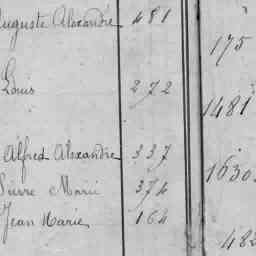 Auguste Alexandre 481
175
Louis 272
1481
Alfred Alexandre 337
1630
Pierre Marie 374
Jean Marie 164
482